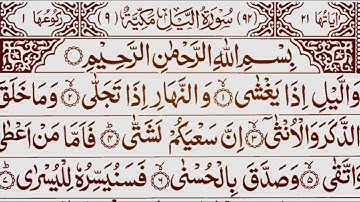 اٰيَاتُهَا ٢١ (٩٢) سُوْرَةُ الَّيْلِ مَكِّيَّةٌ (٩) رُكُوْعُهَا ١
بِسْمِ اللّٰهِ الرَّحْمٰنِ الرَّحِيْمِ
وَالَّيْلِ اِذَا يَغْشٰى ۙ﴿١﴾ وَالنَّهَارِ اِذَا تَجَلّٰى ۙ﴿٢﴾ وَمَا خَلَقَ
الذَّكَرَ وَالْاُنْثٰٓى ۙ﴿٣﴾ اِنَّ سَعْيَكُمْ لَشَتّٰى ؕ﴿٤﴾ فَاَمَّا مَنْ اَعْطٰى
وَاتَّقٰى ۙ﴿٥﴾ وَصَدَّقَ بِالْحُسْنٰى ۙ﴿٦﴾ فَسَنُيَسِّرُهٗ لِلْيُسْرٰى ؕ﴿٧﴾